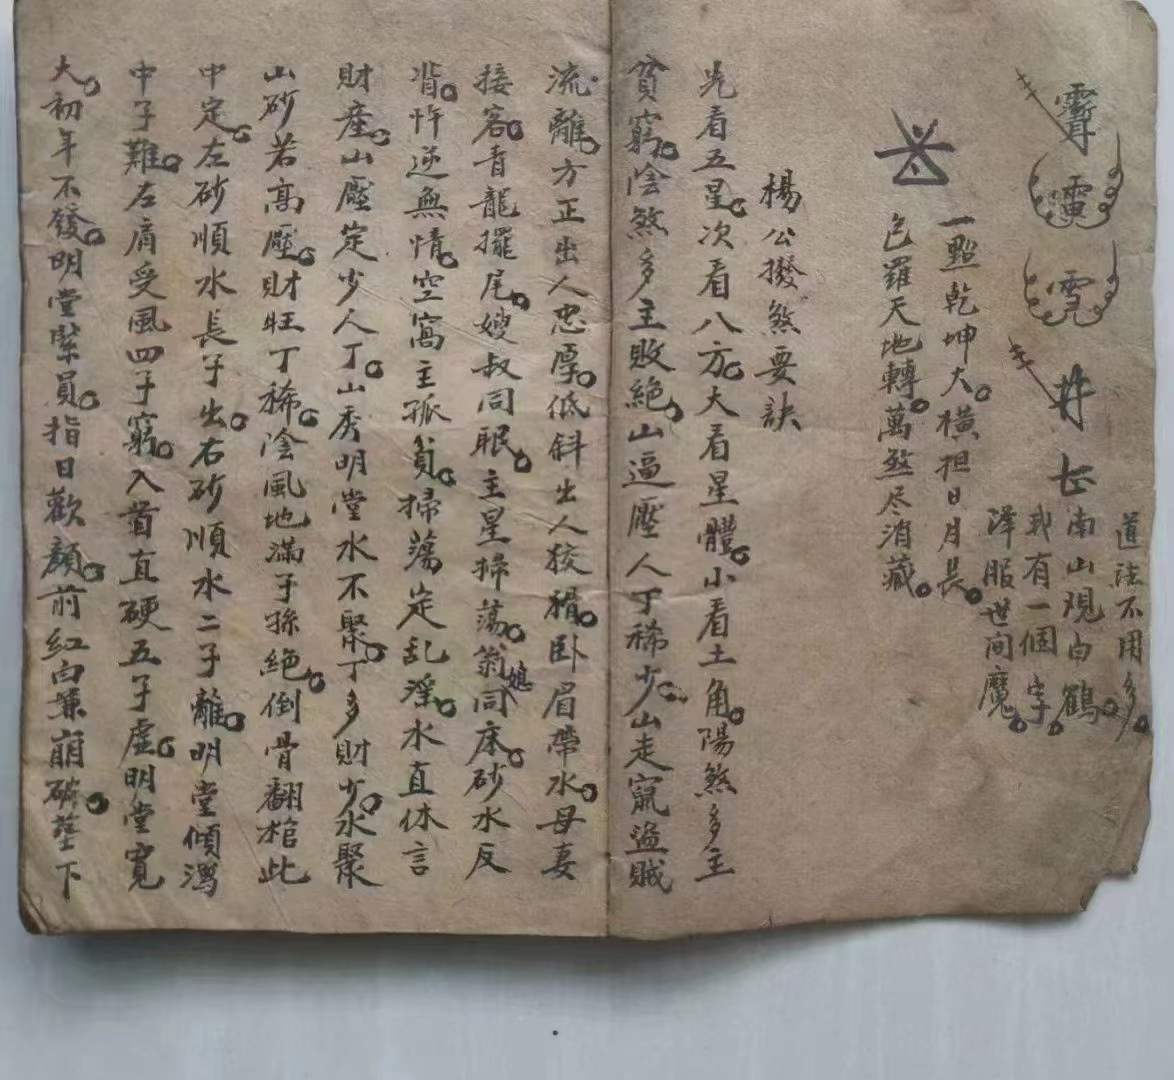 道法不用多。
南山觀白鶴。
我有一個字。
澤服世间魔。
一點乾坤大。橫担日月長。
包羅天地轉。萬煞尽消藏。
楊公撥煞要訣
先看五星。次看八方。大看星體。小看土角。陽煞多主
貧窮。陰煞多主敗絕。山逼壓人丁稀少。山走竄盜賊
流離。方正出人忠厚。低斜出人狡猾。卧眉帶水。母妻
接客。青龍擺尾。嫂叔同眠。主星掃蕩。翁媳同床。砂水反
背。忤逆無情。空窩主孤貧。掃蕩定乱淫。水直休言
財産。山壓定少人丁。山秀明堂水不聚。丁多財少。水聚
山砂若高壓。財旺丁稀。陰風地滿子孫絕。倒骨翻棺此
中定。左砂順水長子出。右砂順水二子離。明堂傾瀉
中子難。左肩受風四子窮。入首直硬五子虛。明堂寬
大。初年不發。明堂緊員。指日歡顏。前紅白 崩破。塟下